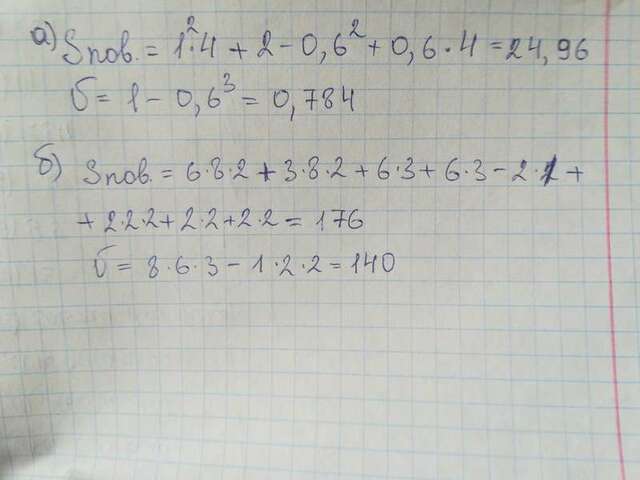 а) Sпов. = 1²·4 + 2 - 0,6² + 0,6·4 = 24,96
V = 1 - 0,6³ = 0,784
б) Sпов. = 6·8·2 + 3·8·2 + 6·3 + 6·3 - 2·1 +
+ 2·2·2 + 2·2 + 2·2 = 176
V = 8·6·3 - 1·2·2 = 140